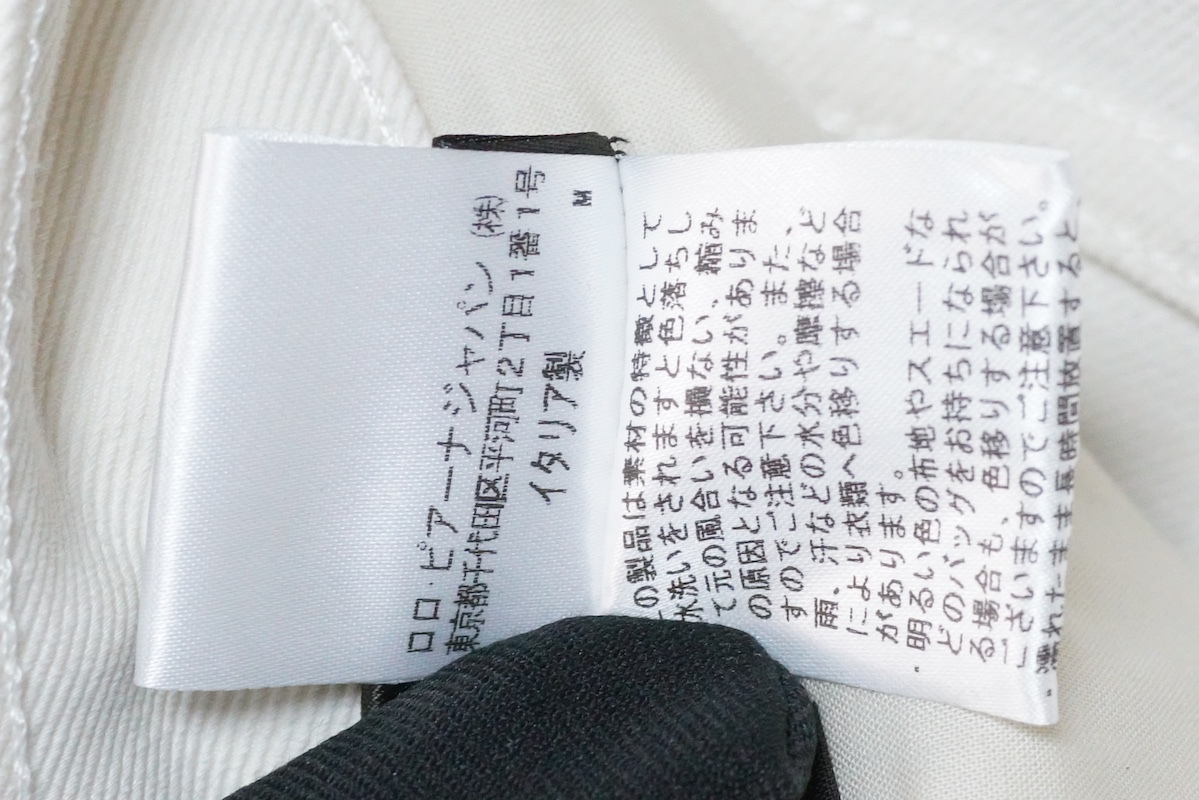 ロロ・ピアーナジャパン (株)
東京都千代田区平河町2丁目1番1号
イタリア製
M
の製品は素材の特徴として
水洗いをされますと色落ちし
て元の風合いを損ない、縮み
の原因となる可能性がありま
すのでご注意下さい。また、
雨、汗などの水分や摩擦など
により衣類へ色移りする場合
があります。
・明るい色の布地やスエードな
どのバッグをお持ちになられ
る場合も、色移りする場合が
ございますのでご注意下さい。
・濡れたまま長時間放置すると、